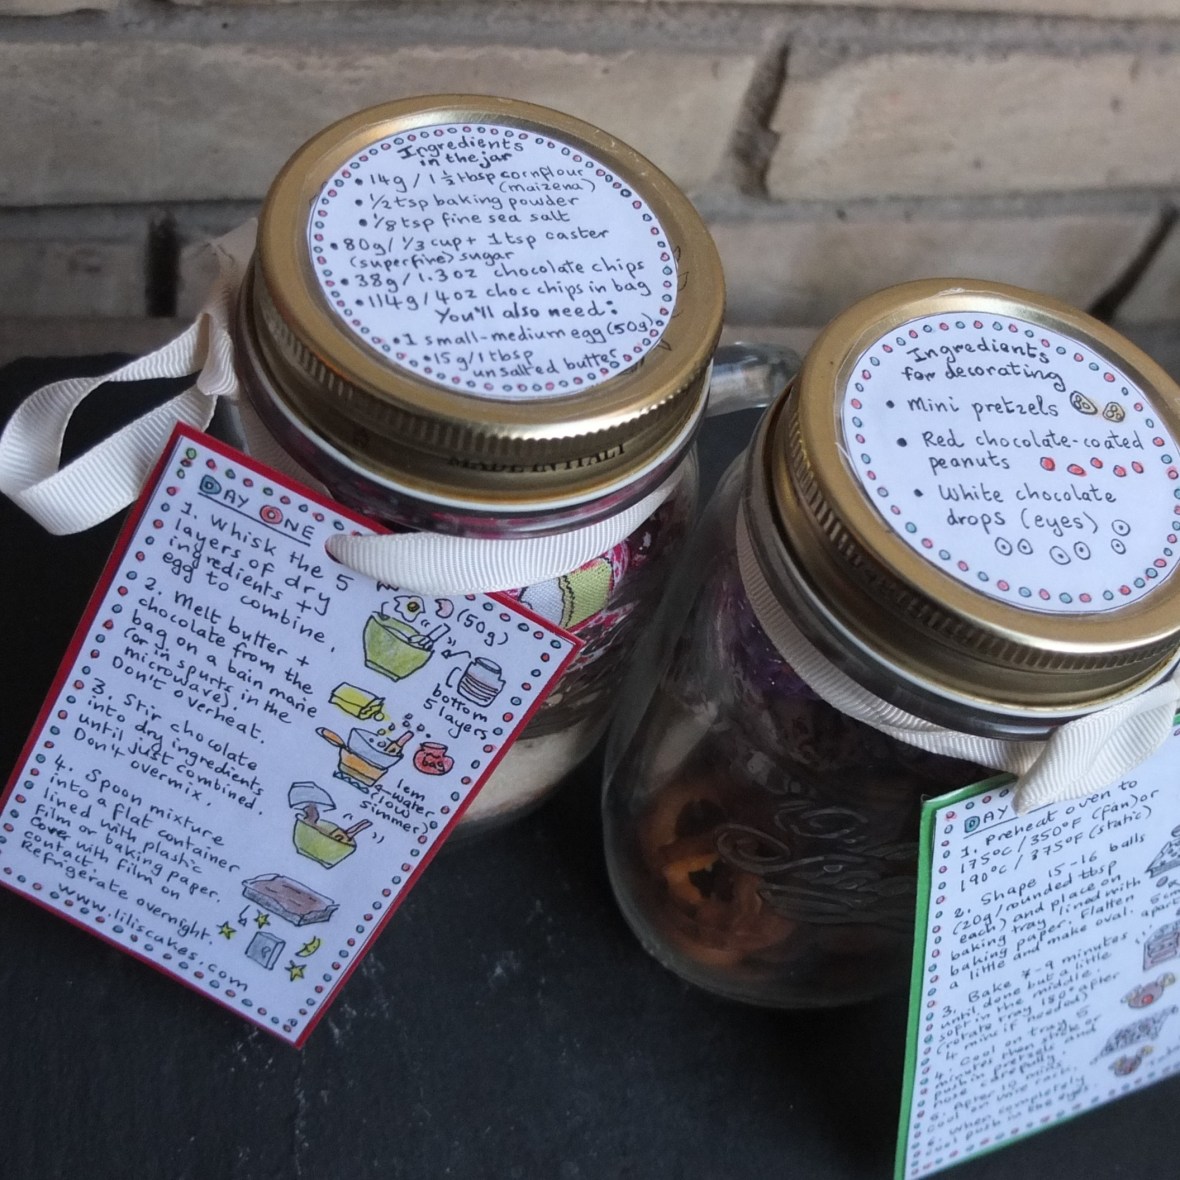 Ingredients
in the jar
• 14g / 1 ½ tbsp cornflour
(maizena)
• ½ tsp baking powder
• ⅛ tsp fine sea salt
• 80g / ⅓ cup + 1 tsp caster
(superfine) sugar
• 38g / 1.3 oz chocolate chips
• 114g / 4 oz choc chips in bag
You'll also need:
• 1 small-medium egg (50g)
• 15g / 1 tbsp
unsalted butter
MADE IN ITALY
DAY ONE
1. Whisk the 5
layers of dry
ingredients +
egg to combine.
2. Melt butter +
chocolate from the
bag on a bain marie
(or in spurts in the
microwave).
Don't overheat.
3. Stir chocolate
into dry ingredients
until just combined.
Don't overmix.
4. Spoon mixture
into a flat container
lined with plastic
film or baking paper.
Cover with film on
contact.
Refrigerate overnight.
www.liliscakes.com
(50g)
bottom
5 layers
bag
1cm
water
(low
simmer)
Ingredients
for decorating
• Mini pretzels
• Red chocolate-coated
peanuts
• White chocolate
drops (eyes)
DAY
1. Preheat oven to
175°C / 350°F (fan) or
190°C / 375°F (static)
2. Shape 15-16 balls
(20g / rounded tbsp
each) and place on
baking tray lined with
baking paper. Flatten
a little and make oval.
3. Bake 7-9 minutes
until done but a little
soft in the middle.
(rotate tray 180° after
4 mins if needed)
4. Cool on tray 5
minutes then stick or
push in pretzels and
nose carefully.
5. After 10 mins,
cool on wire rack.
6. When completely
cool push in the eyes.